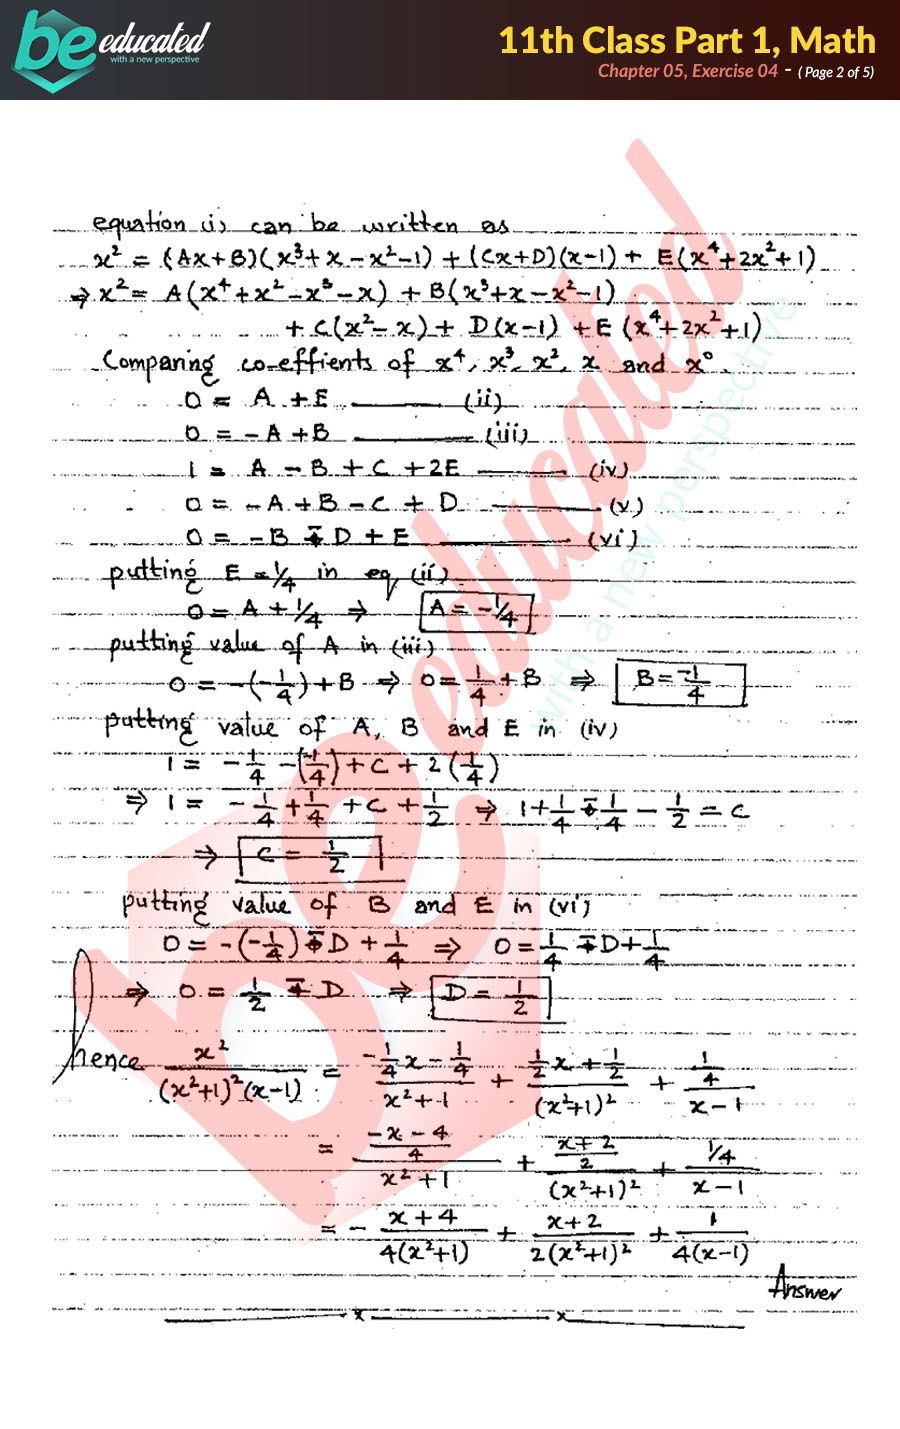 be educated
with a new perspective
11th Class Part 1, Math
Chapter 05, Exercise 04 - ( Page 2 of 5)
equation (i) can be written as
x² = (Ax+B)(x³+x-x²-1) + (Cx+D)(x-1) + E(x⁴+2x²+1)
⇒ x² = A(x⁴+x²-x³-x) + B(x³+x-x²-1)
+ C(x²-x) + D(x-1) + E(x⁴+2x²+1)
Comparing co-effients of x⁴, x³, x², x and x⁰.
0 = A + E ——— (ii)
0 = -A + B ——— (iii)
1 = A - B + C + 2E ——— (iv)
0 = -A + B - C + D ——— (v)
0 = -B - D + E ——— (vi)
putting E = 1/4 in eq (ii)
0 = A + 1/4 ⇒ A = -1/4
putting value of A in (iii)
0 = -(-1/4) + B ⇒ 0 = 1/4 + B ⇒ B = -1/4
putting value of A, B and E in (iv)
1 = -1/4 - (-1/4) + C + 2(1/4)
⇒ 1 = -1/4 + 1/4 + C + 1/2 ⇒ 1 + 1/4 - 1/4 - 1/2 = C
⇒ C = 1/2
putting value of B and E in (vi)
0 = -(-1/4) - D + 1/4 ⇒ 0 = 1/4 - D + 1/4
⇒ 0 = 1/2 - D ⇒ D = 1/2
hence x²/((x²+1)²(x-1)) = (-1/4 x - 1/4)/(x²+1) + (1/2 x + 1/2)/(x²+1)² + (1/4)/(x-1)
= ((-x-4)/4)/(x²+1) + ((x+2)/2)/(x²+1)² + (1/4)/(x-1)
= - (x+4)/(4(x²+1)) + (x+2)/(2(x²+1)²) + 1/(4(x-1))
Answer
be educated
with a new perspective